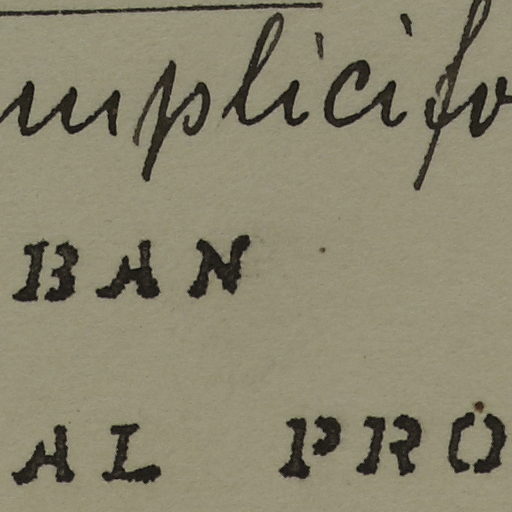 mplicifo
BAN
AL PRO